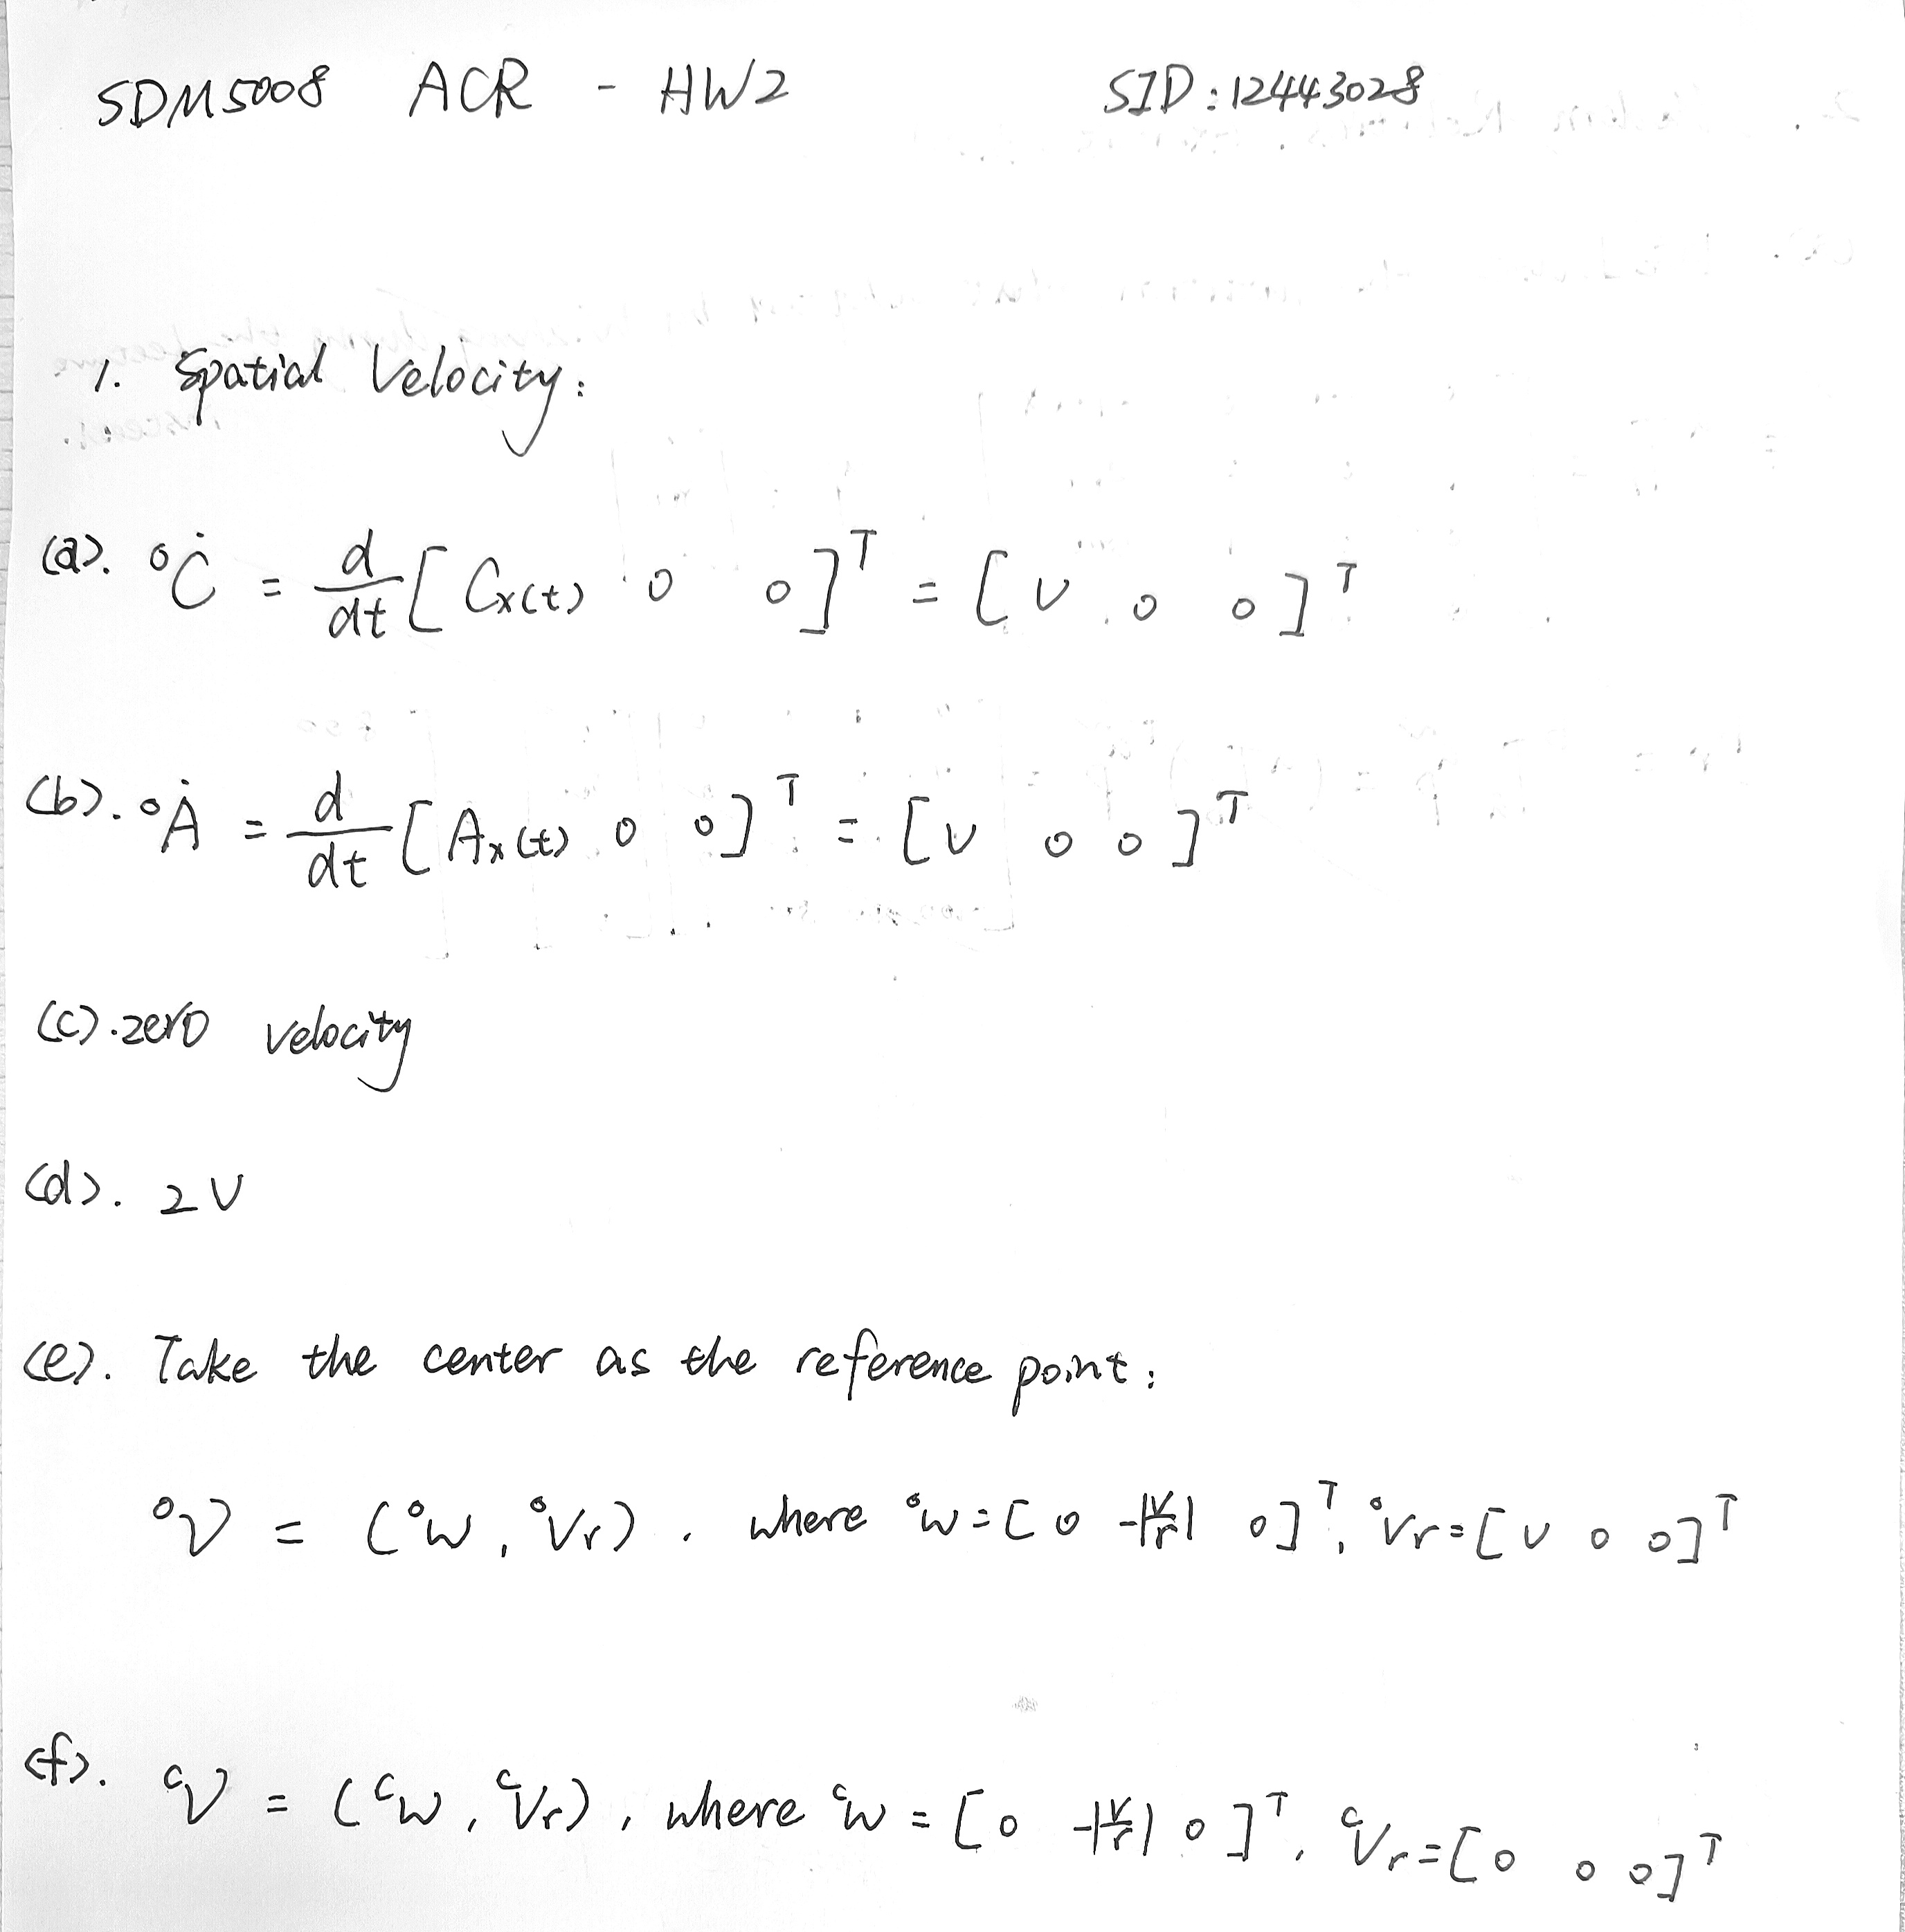 SDM5008 ACR - HW2 SID: 12443028
1. Spatial Velocity:
(a). ⁰Ċ = d/dt [ Cx(t) 0 0 ]ᵀ = [ v 0 0 ]ᵀ
(b). ⁰Ȧ = d/dt [ Ax(t) 0 0 ]ᵀ = [ v 0 0 ]ᵀ
(c). zero velocity
(d). 2v
(e). Take the center as the reference point:
⁰V = (⁰w, ⁰Vr), where ⁰w = [ 0 -|v/r| 0 ]ᵀ, ⁰Vr = [ v 0 0 ]ᵀ
(f). ᶜV = (ᶜw, ᶜVr), where ᶜw = [ 0 -|v/r| 0 ]ᵀ, ᶜVr = [ 0 0 0 ]ᵀ